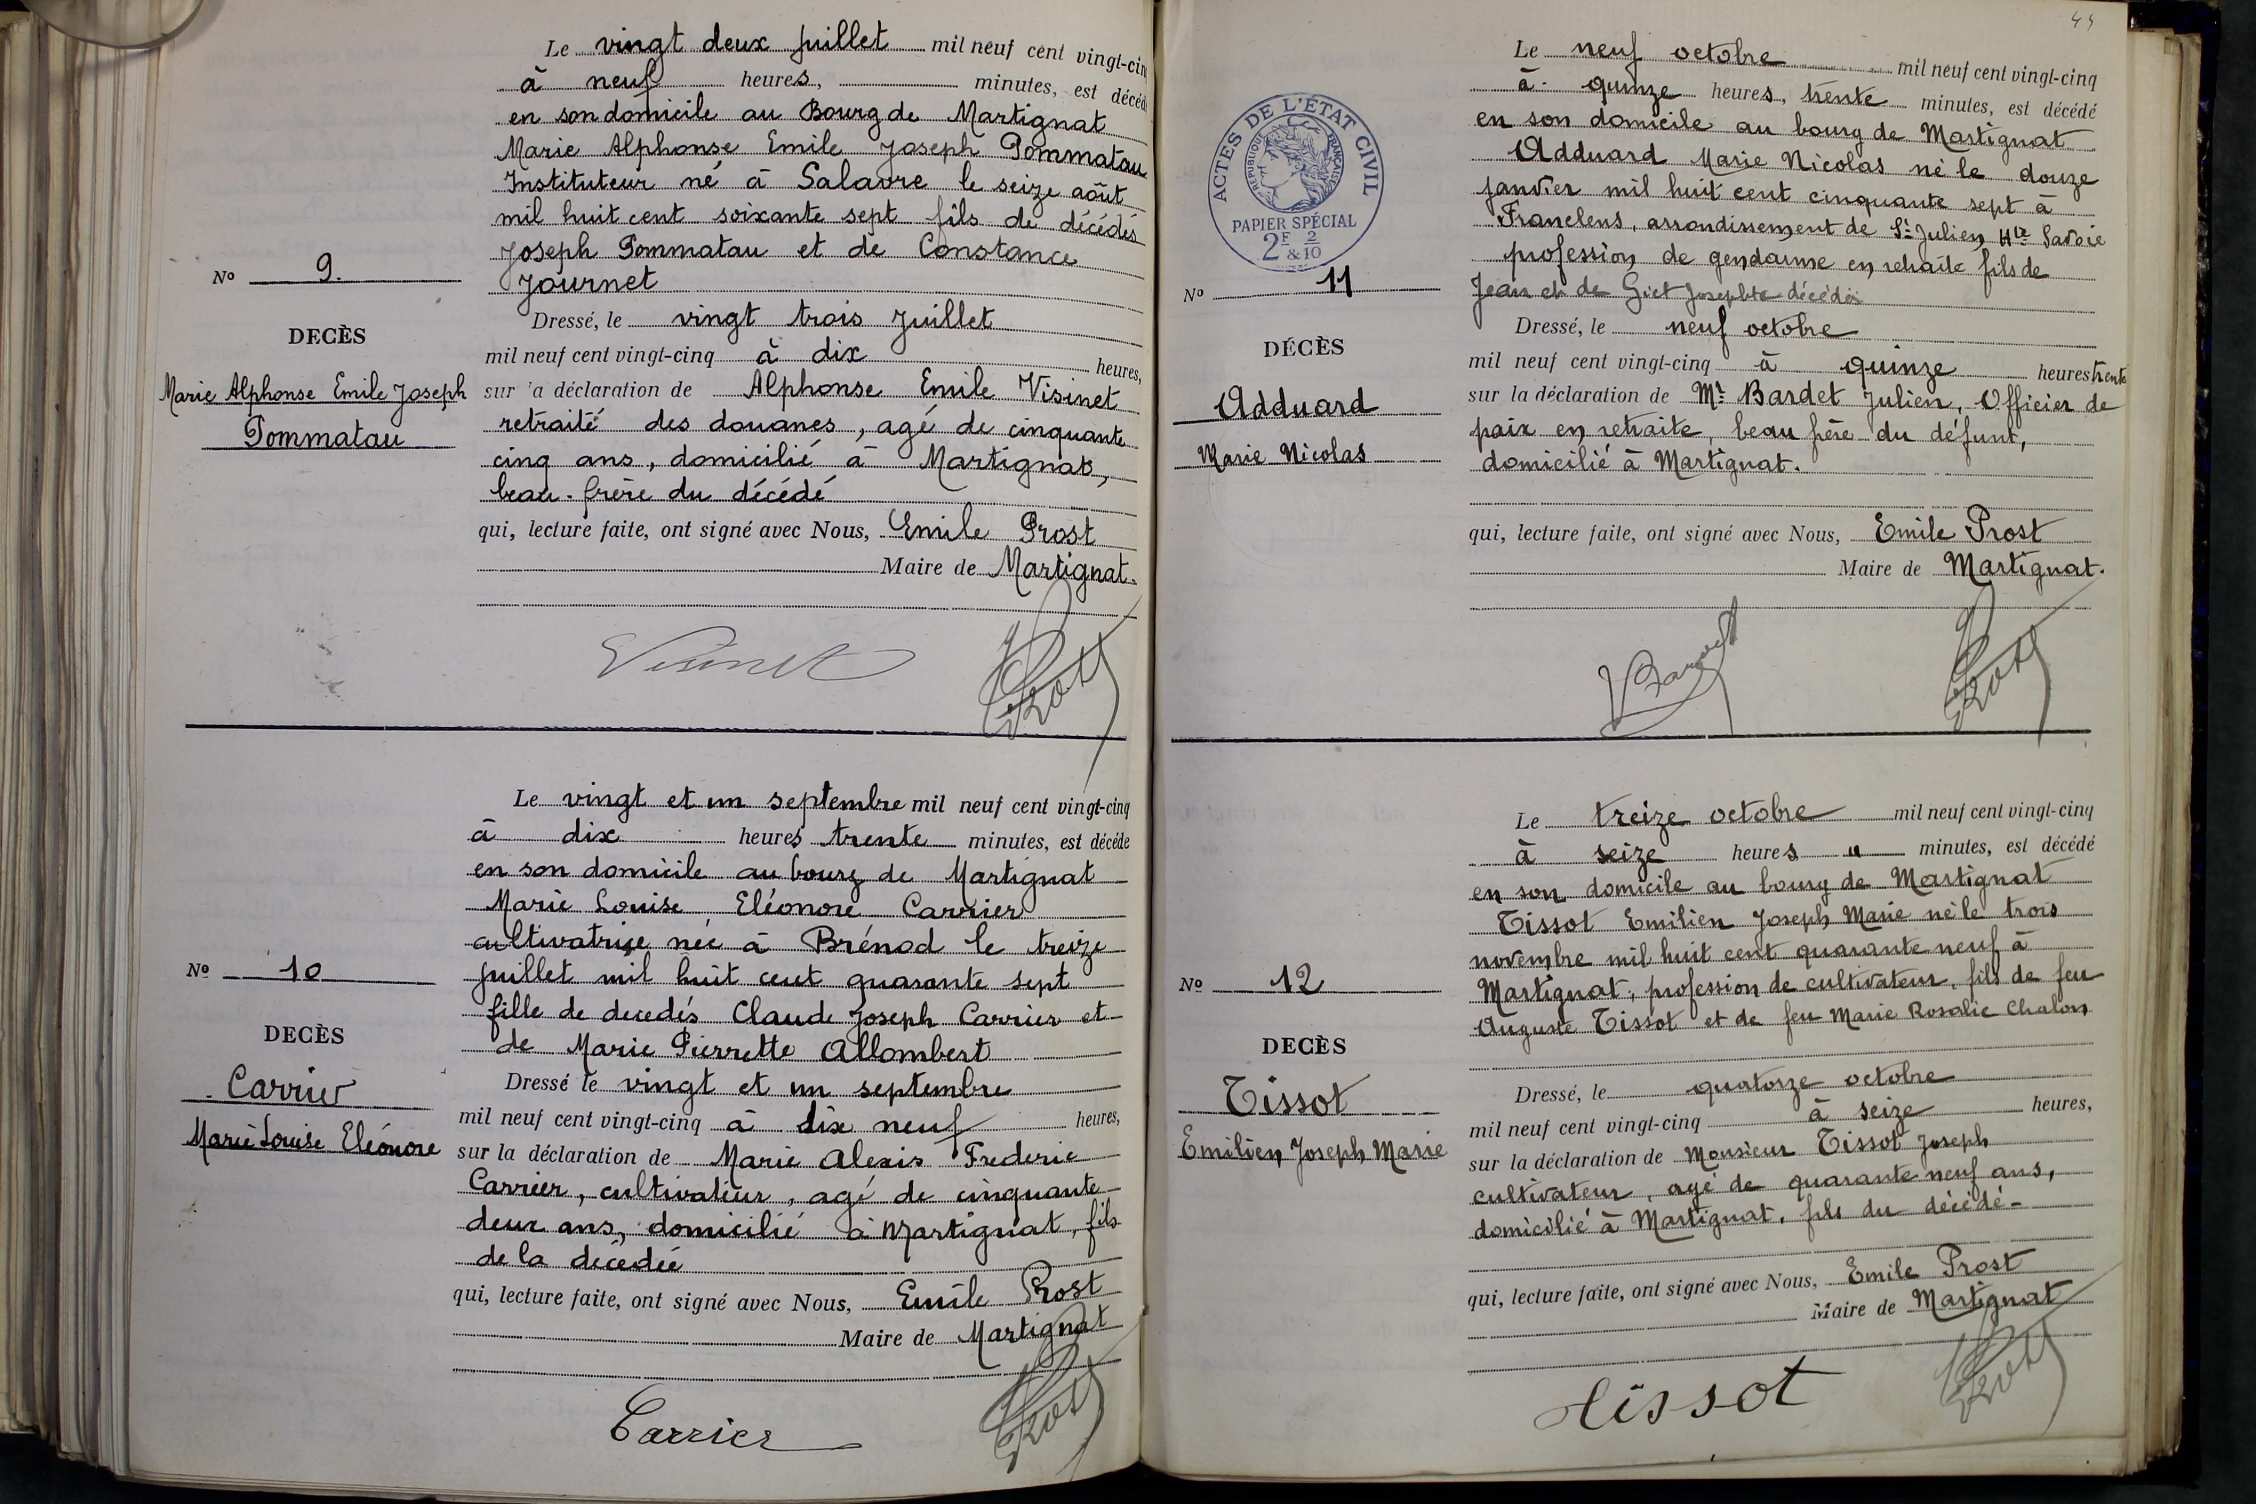 Le vingt deux juillet mil neuf cent vingt-cin
à neuf heures, minutes, est décéd
en son domicile au Bourg de Martignat
Marie Alphonse Emile Joseph Pommatau
Instituteur né à Salavre le seize août
mil huit cent soixante sept fils de décédés
Joseph Pommatau et de Constance
Journet
Nº 9.
DECÈS
Marie Alphonse Emile Joseph
Pommatau
Dressé, le vingt trois Juillet
mil neuf cent vingt-cinq à dix heures,
sur 'a déclaration de Alphonse Emile Visinet
retraité des douanes, agé de cinquante
cinq ans, domicilié à Martignat,
beau-frère du décédé
qui, lecture faite, ont signé avec Nous, Emile Prost
Maire de Martignat.
Visinet
Prost
Le vingt et un septembre mil neuf cent vingt-cinq
à dix heures trente minutes, est décéde
en son domicile au bourg de Martignat
Marie Louise Eléonore Carrier
cultivatrice née à Brénod le treize
juillet mil huit cent quarante sept
fille de decedés Claude Joseph Carrier et
de Marie Pierrette Allombert
Nº 10
DECÈS
Carrier
Marie Louise Eléonore
Dressé le vingt et un septembre
mil neuf cent vingt-cinq à dix neuf heures,
sur la déclaration de Marie Alexis Frederic
Carrier, cultivateur, agé de cinquante
deux ans, domicilié à Martignat, fils
de la décédée
qui, lecture faite, ont signé avec Nous, Emile Prost
Maire de Martignat
Carrier
Prost
44
ACTES DE L'ÉTAT CIVIL
RÉPUBLIQUE FRANÇAISE
PAPIER SPÉCIAL
2F & 2/10
Le neuf octobre mil neuf cent vingt-cinq
à quinze heures, trente minutes, est décédé
en son domicile au bourg de Martignat
Adduard Marie Nicolas né le douze
janvier mil huit cent cinquante sept à
Franclens, arrondissement de St Julien Hte Savoie
profession de gendarme en retraite fils de
Jean et de Griet Josephte décédés
Nº 11
DÉCÈS
Adduard
Marie Nicolas
Dressé, le neuf octobre
mil neuf cent vingt-cinq à quinze heures trente
sur la déclaration de Mr Bardet Julien, Officier de
paix en retraite, beau frère du défunt,
domicilié à Martignat.
qui, lecture faite, ont signé avec Nous, Emile Prost
Maire de Martignat.
Bardet
Prost
Le treize octobre mil neuf cent vingt-cinq
à seize heures " minutes, est décédé
en son domicile au bourg de Martignat
Tissot Emilien Joseph Marie né le trois
novembre mil huit cent quarante neuf à
Martignat, profession de cultivateur, fils de feu
Auguste Tissot et de feu Marie Rosalie Chalon
Nº 12
DECÈS
Tissot
Emilien Joseph Marie
Dressé, le quatorze octobre
mil neuf cent vingt-cinq à seize heures,
sur la déclaration de Monsieur Tissot Joseph
cultivateur, agé de quarante neuf ans,
domicilié à Martignat, fils du décédé -
qui, lecture faite, ont signé avec Nous, Emile Prost
Maire de Martignat
Tissot
Prost